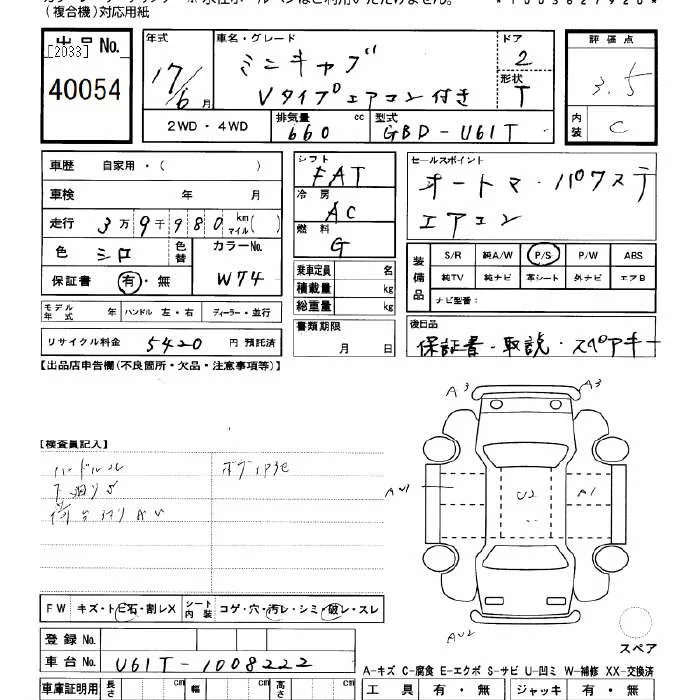 (複合機)対応用紙
出品No.
[2033]
40054
年式
17/6月
車名・グレード
ミニキャブ
Vタイプエアコン付き
ドア
2
形状
T
評価点
3.5
内装
C
2WD・4WD
排気量
660 cc
型式
GBD-U61T
車歴 自家用・( )
車検 年 月
走行 3万9千980 km マイル( )
色 シロ 色替
カラーNo.
W74
保証書 有・無
モデル年式 年 ハンドル 左・右 ディーラー・並行
リサイクル料金 5420 円 預託済
シフト
FAT
冷房
AC
燃料
G
乗車定員 名
積載量 kg
総重量 kg
書類期限
月 日
セールスポイント
オートマ・パワステ
エアコン
装備品
S/R 純A/W P/S P/W ABS
純TV 純ナビ 革シート 外ナビ エアB
ナビ型番:
後日品
保証書・取説・スペアキー
【出品店申告欄(不良箇所・欠品・注意事項等)】
【検査員記入】
A3 A3
U2
A1
AU2
FW キズ・トビ石・割レX シート内装 コゲ・穴・汚レ・シミ・破レ・スレ
登録No.
車台No. U61T-1008222
車庫証明用 長さ cm 幅 cm 高さ cm
スペア
A-キズ C-腐食 E-エクボ S-サビ U-凹ミ W-補修 XX-交換済
工具 有・無 ジャッキ 有・無